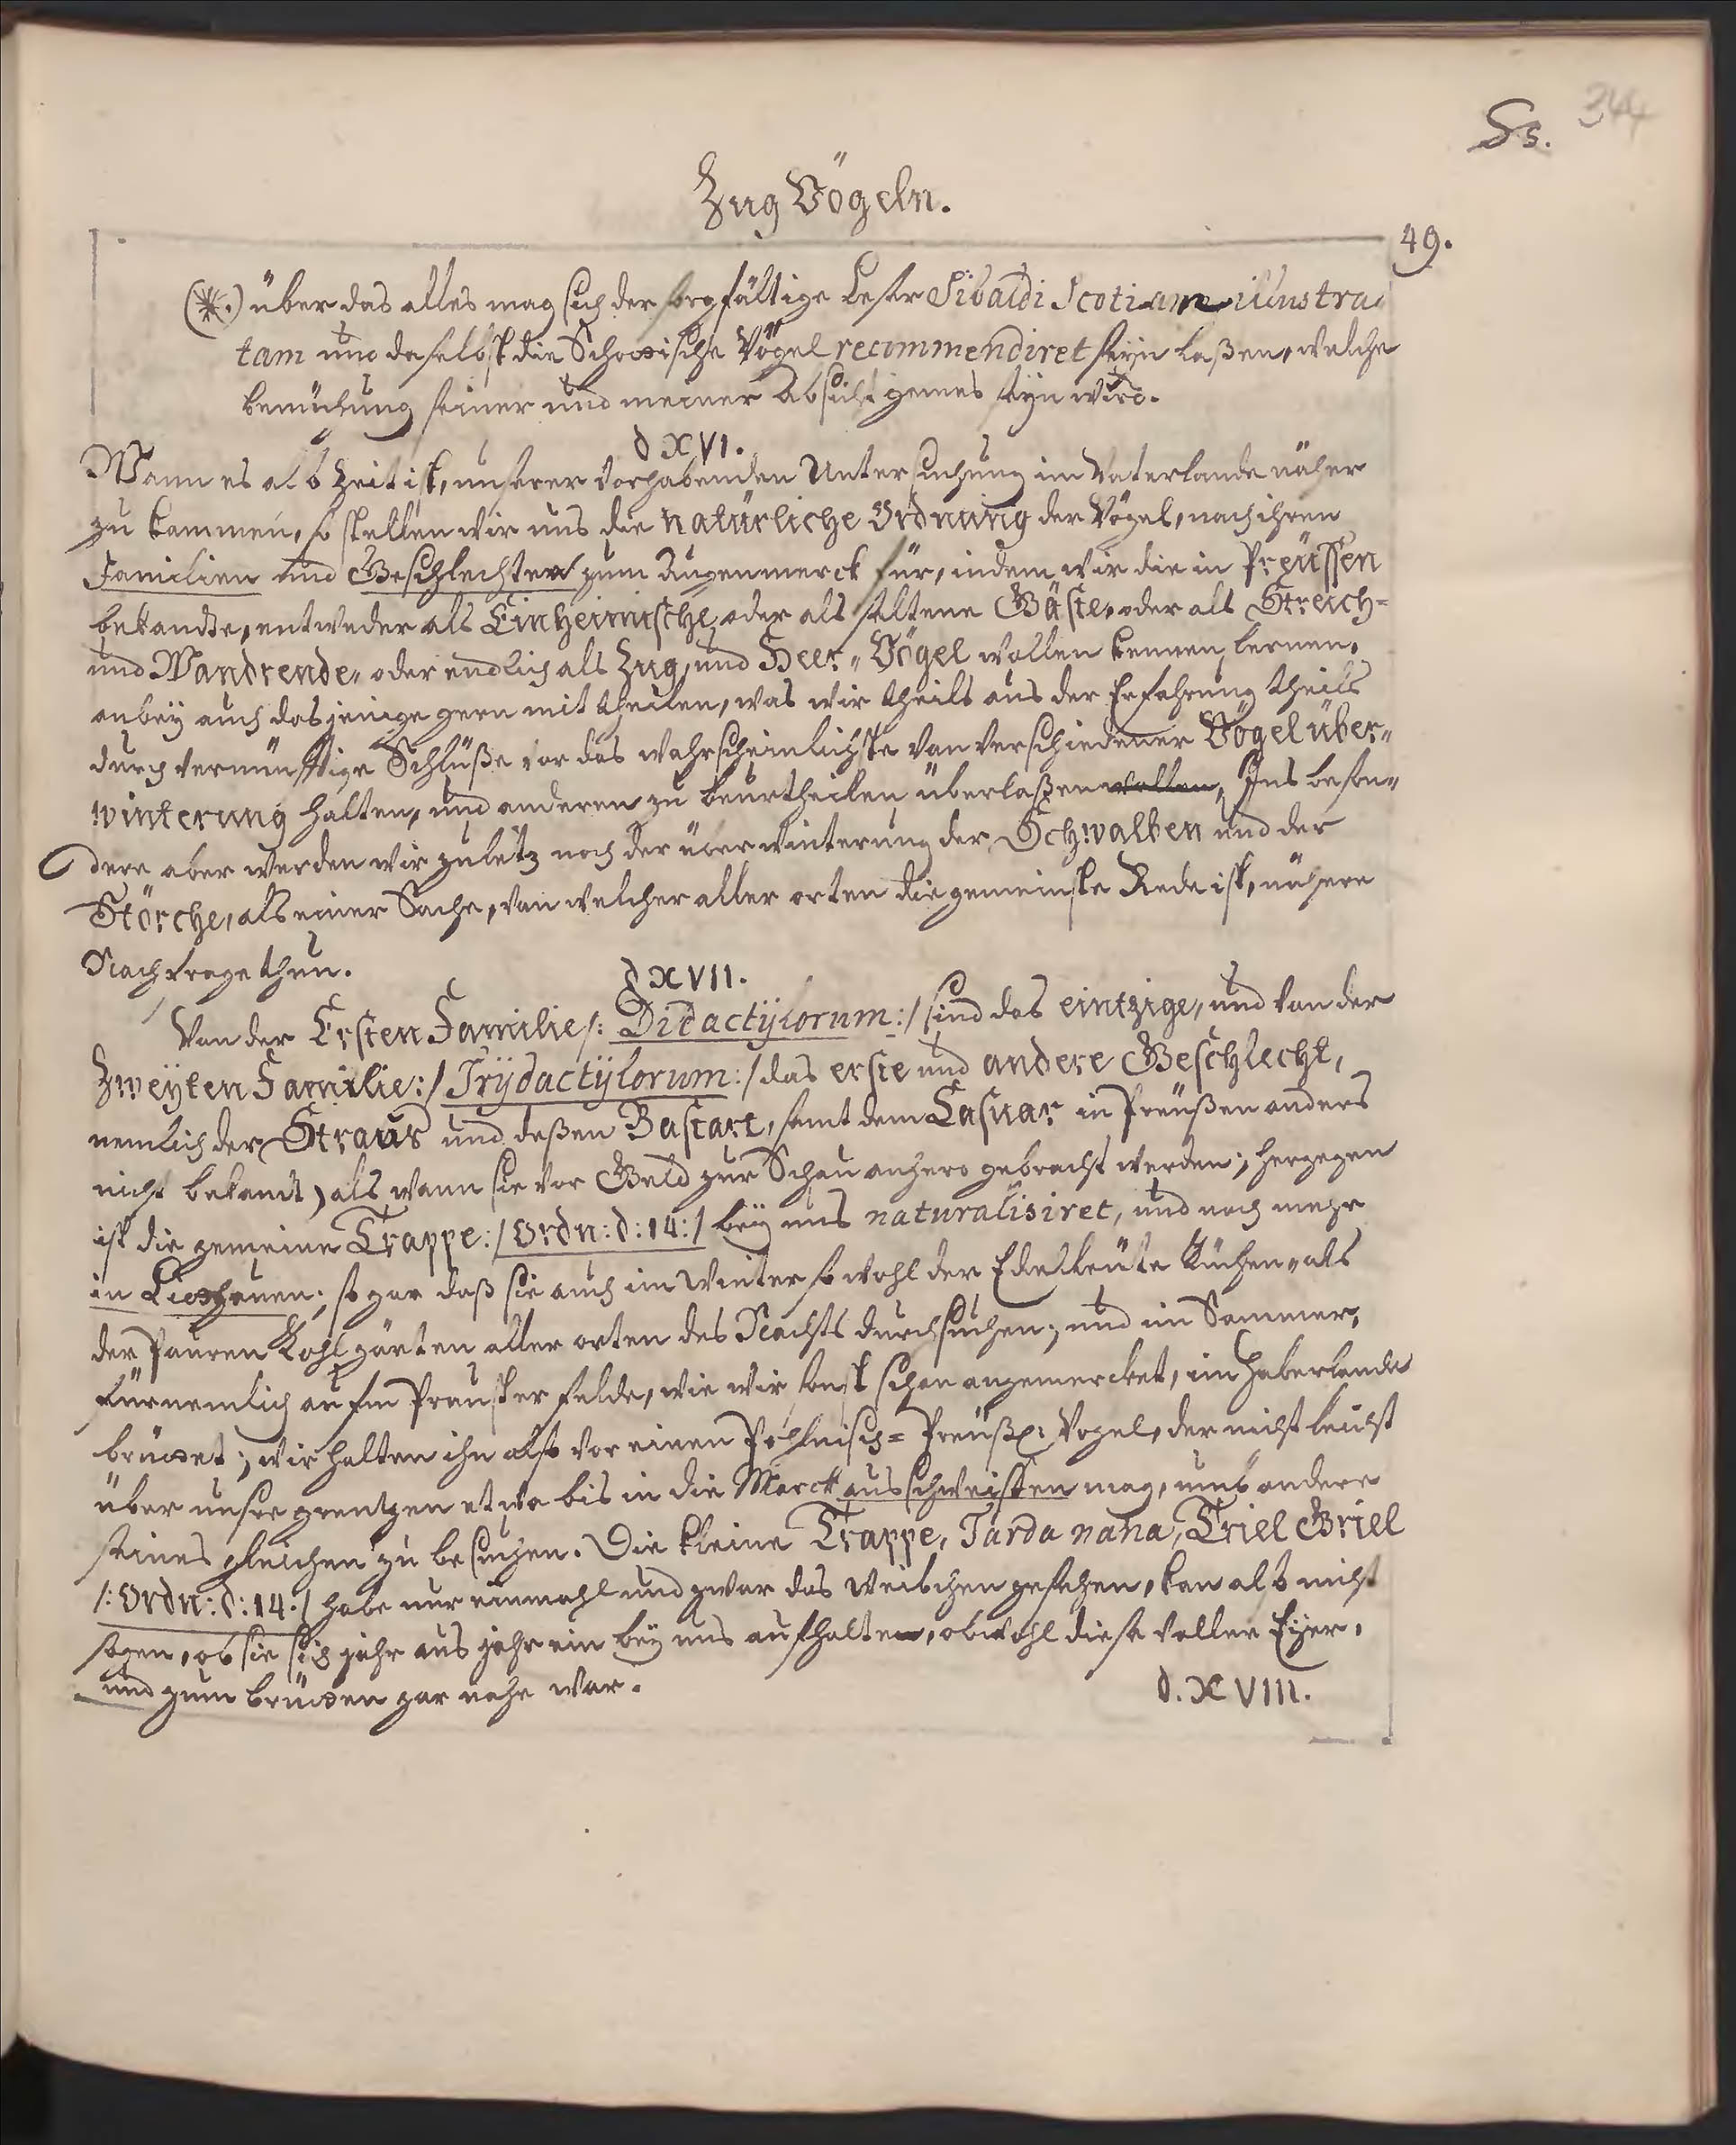 344
Ss.
Zug Vögeln.
49.
(*.) über das alles mag sich der sorgfältige Leser Sibaldi Scotiam illustra-
tam und daselbst die Schottische Vögel recommendiret seyn laßen, welche
bemühung seiner und meiner Absicht gemes seyn wird.
§ XVI.
Wann es also Zeit ist, unserer vorhabenden Untersuchung im Vaterlande näher
zu kommen, so stellen wir uns die natürliche Ordnung der Vögel, nach ihren
Familien und Geschlechter zum Augenmerck für, indem wir die in Preüssen
bekandte, entweder als Einheimische, oder als seltene Gäste, oder als Streich-
und Wandrende, oder endlich als Zug, und Heer-Vögel wollen kennen lernen,
anbey auch das jenige gern mit theilen, was wir theils aus der Erfahrung theils
durch vernünfftige Schlüße vor das wahrscheinlichste von verschiedener Vögel über-
winterung halten, und anderen zu beurtheilen überlaßen wollen, Ins beson-
dere aber werden wir zuletz noch der überwinterung der Schwalben und der
Störche, als einer Sache, von welcher aller orten die gemeinste Rede ist, nähere
Nachfrage thun.
§ XVII.
Von der Ersten Familie /: Didactÿlorum :/ sind das eintzige, und von der
Zweÿten Familie :/ Trÿdactÿlorum :/ das erste und andere Geschlecht,
nemlich der Straus und deßen Bastart, samt dem Casuar in Preüßen anders
nicht bekandt, als wann sie vor Geld zur Schau anhero gebracht werden; hergegen
ist die gemeine Trappe :/ Ordn: §: 14 :/ beÿ uns naturalisiret, und noch mehr
in Litthauen; so gar daß sie auch im Winter so wohl der Edelleüte Küchen- als
der Pauren Kohlgärten aller orten des Nachts durchsuchen; und im Sommer,
fürnemlich aufm Prauster felde, wie wir sonst schon angemercket, im Haberlande
brüttet; wir halten ihn also vor einen Pohlnisch- Preüß: Vogel, der nicht leicht
über unsere grentzen etwa bis in die Marck ausschweiffen mag, umb andere
seines gleichen zu besuchen. Die kleine Trappe, Tarda nana, Triel Griel
/: Ordn: §: 14 :/ habe nur einmahl und zwar das Weibchen gesehen, kan also nicht
sagen, ob sie sich jahr aus jahr ein beÿ uns aufhalten, obwohl diese voller Eÿer,
und zum brütten gar nahe war.
§. XVIII.